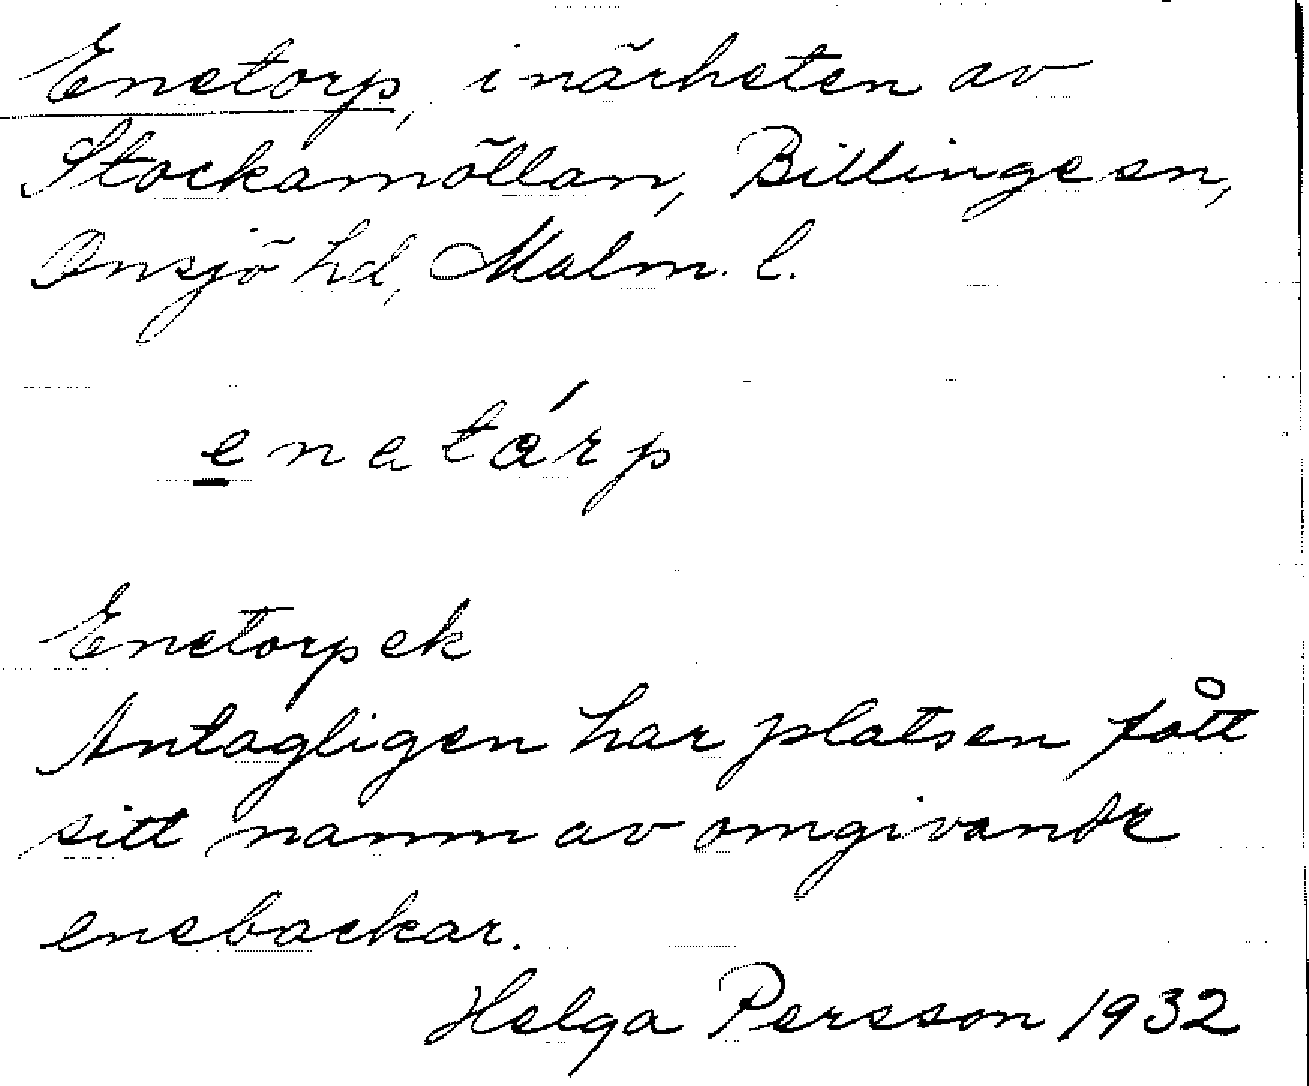 Enetorp, i närheten av
Stockamöllan, Billinge sn,
Onsjö hd, Malm. l.
enatárp
Enetorp ek
Antagligen har platsen fått
sitt namn av omgivande
enebackar.
Helga Persson 1932